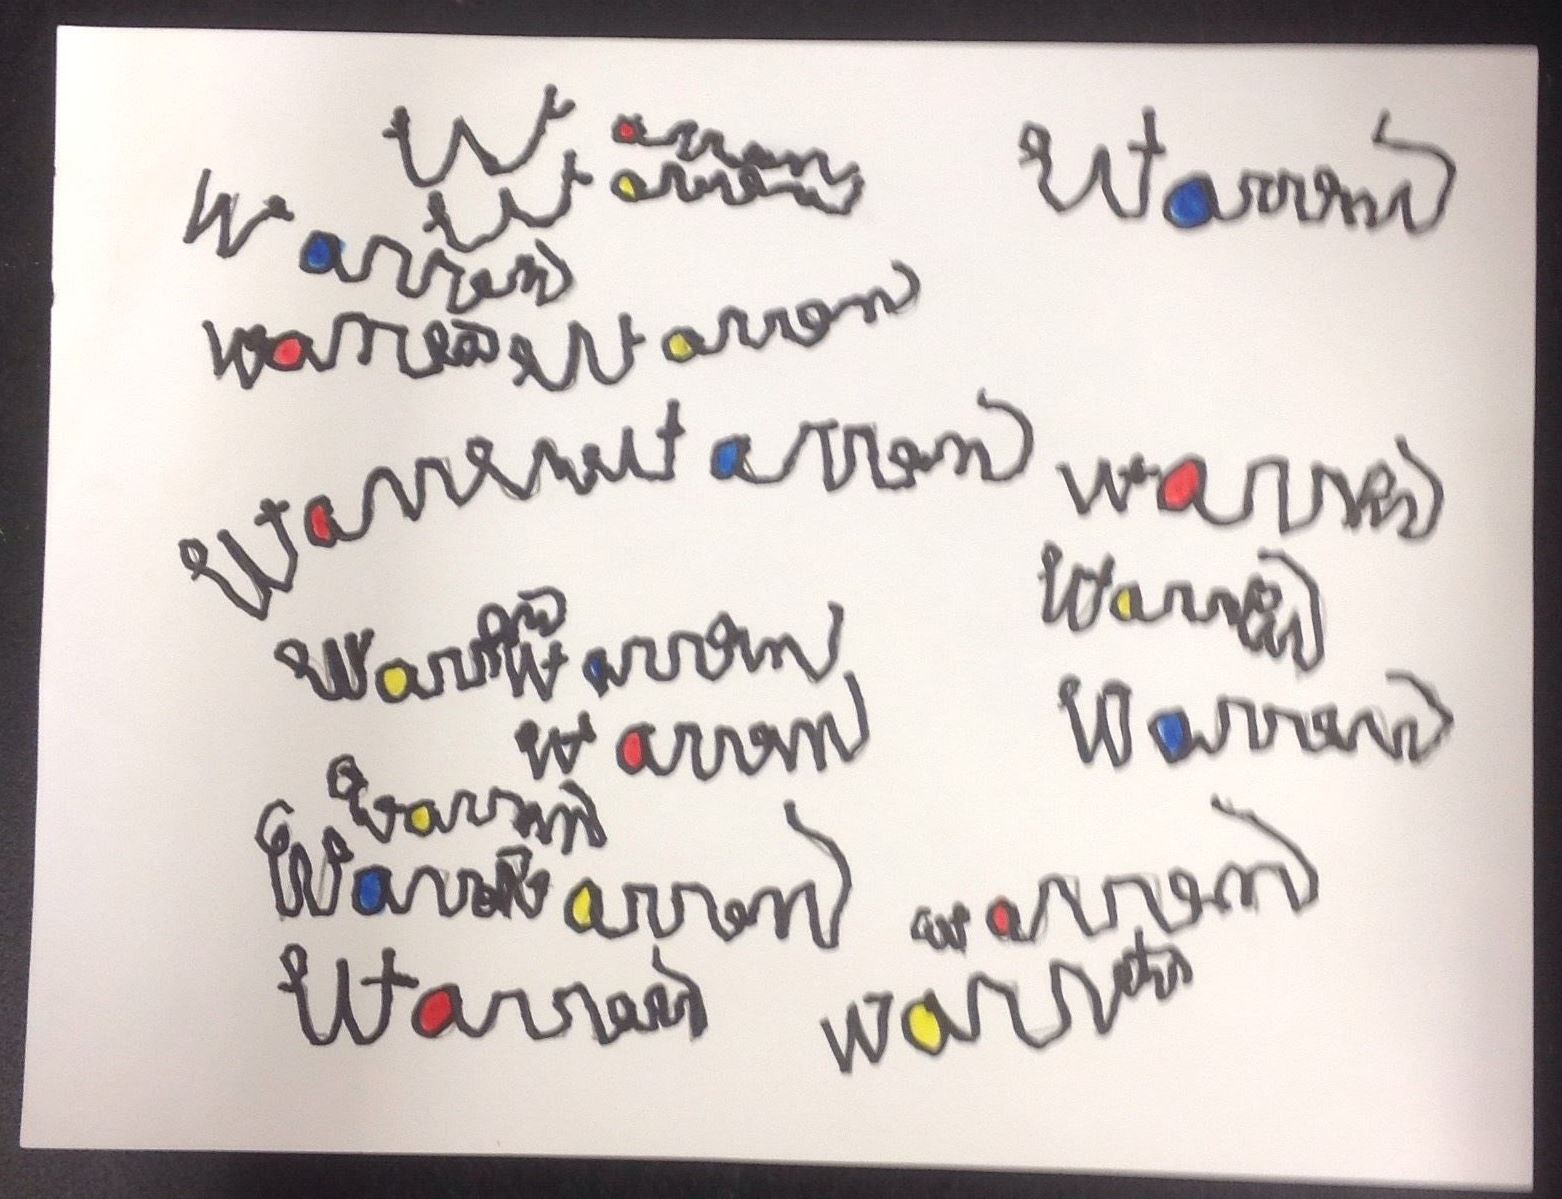 Warren Warren
Warren
Warren
Warren Warren
Warren Warren Warren
Warren
Warren Warren
Warren Warren
Warren
Warren arren Warren
Warren Warren